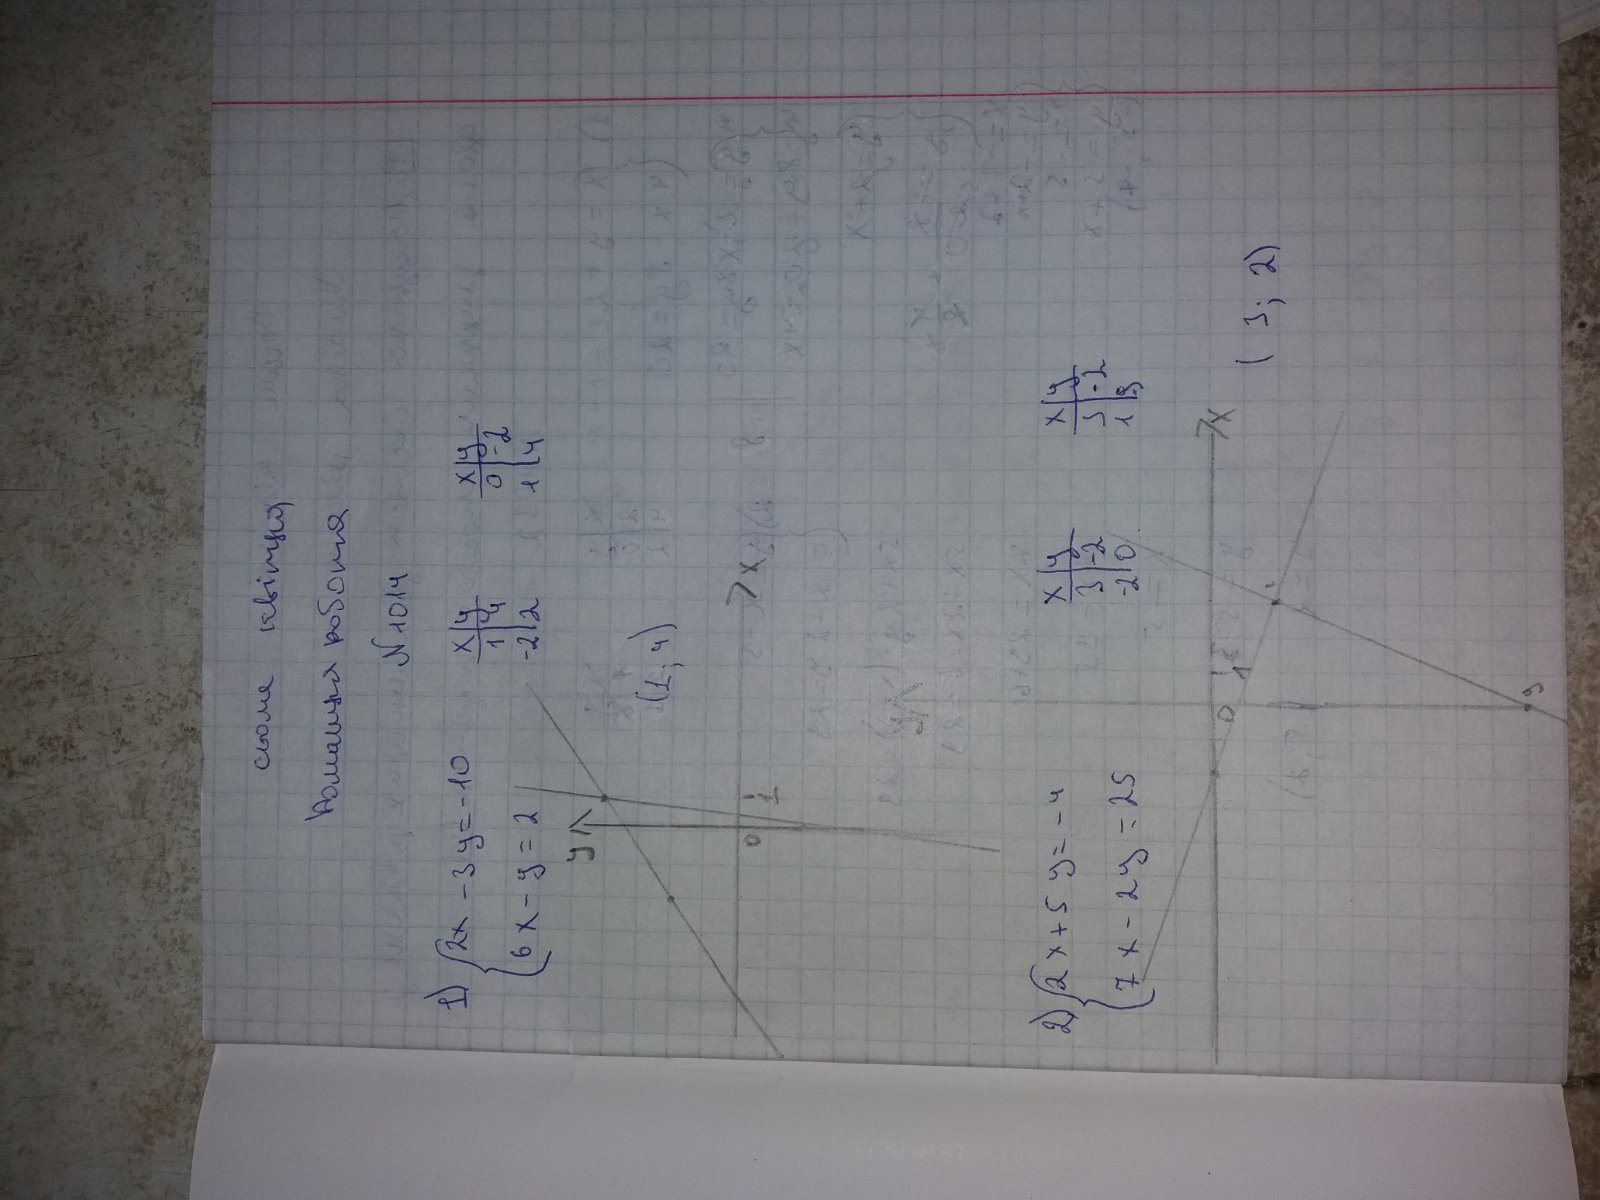 сьоме квітня
Домашня робота
№1014
1) {2x - 3y = -10
{6x - y = 2
x|y
1|4
-2|2
x|y
0|-2
1|4
(1; 4)
y
x
0
1
2) {2x + 5y = -4
{7x - 2y = 25
x|y
3|-2
-2|0
x|y
3|-2
1|-9
(3; 2)
y
x
0
1